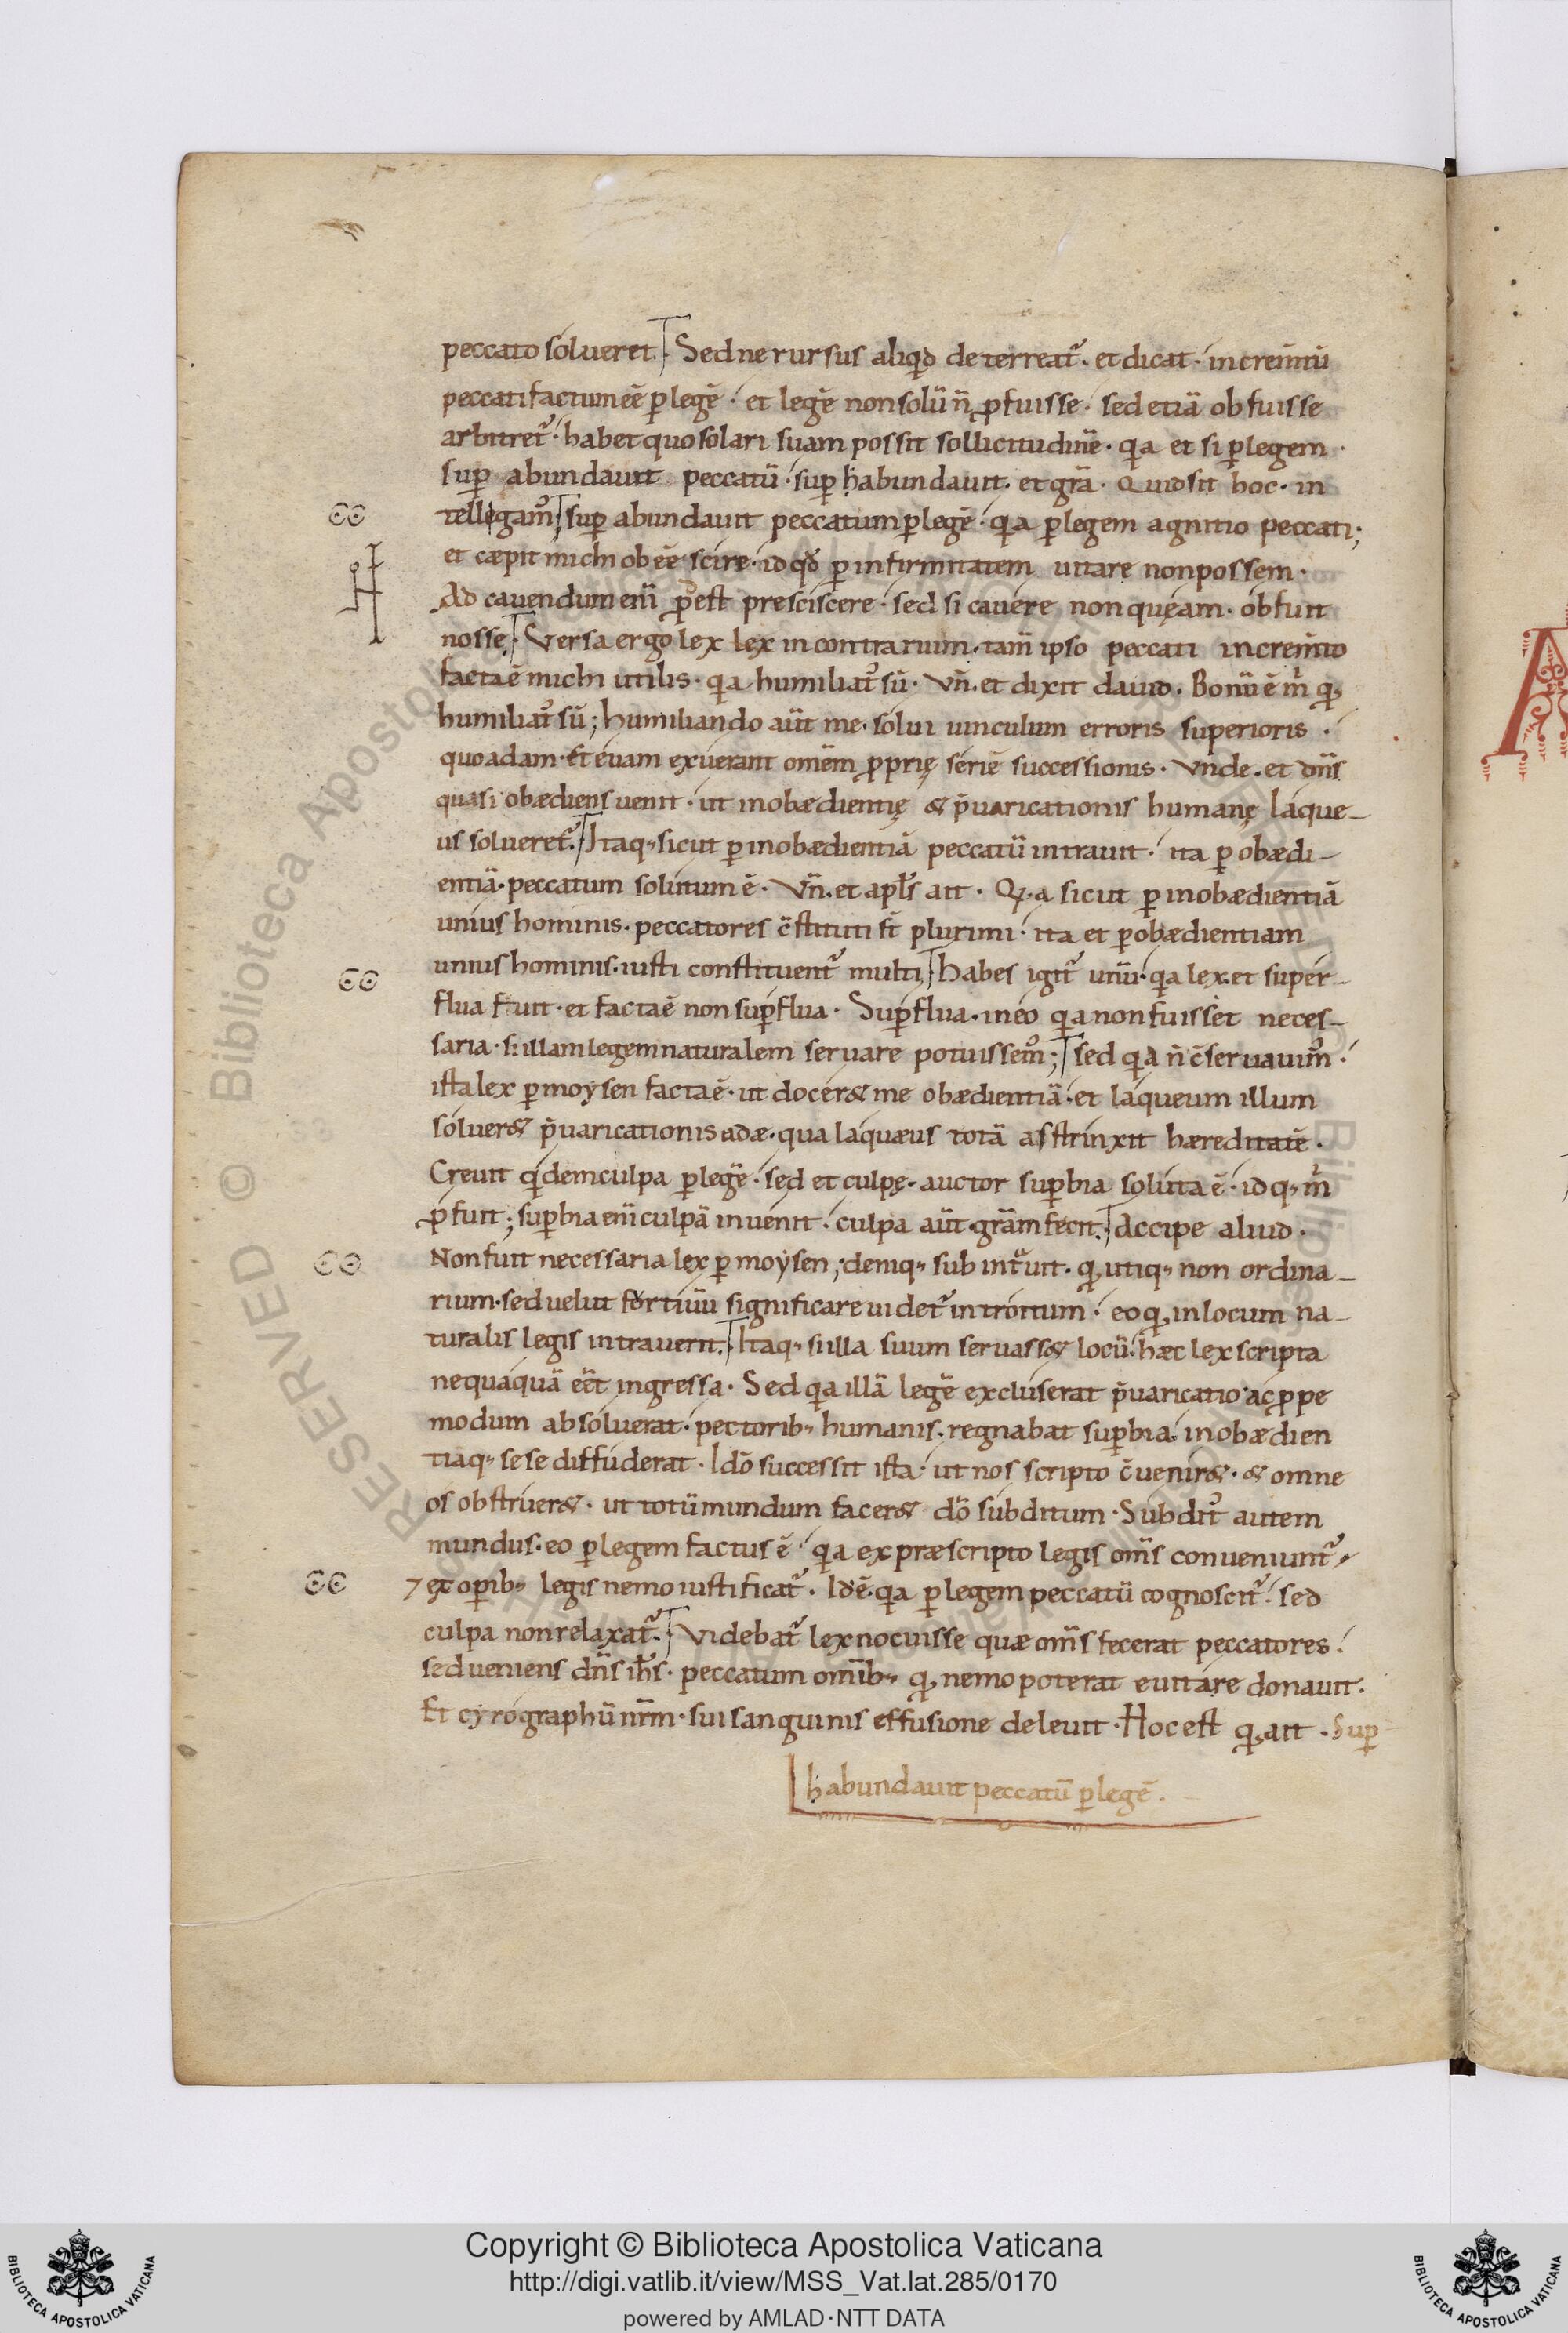 peccato solueret. Sed ne rursus aliqd deterreat᷑. et dicat. incremtũ
peccati factum eẽ ꝑ legẽ. et legẽ non solũ ñ ꝓfuisse. sed etiã obfuisse
arbitret᷑. habet quo solari suam possit sollicitudinẽ. qa et si ꝑ legem
suꝑ abundauit peccatũ. suꝑ habundauit. et grã. Quid sit hoc. in
tellegam᷒ suꝑ abundauit peccatum ꝑ legẽ. qa ꝑ legem agnitio peccati;
et cæpit michi obeẽ scire. id qđ ꝑ infirmitatem uitare non possem.
Ad cauendum enĩ ꝓdest presciscere. sed si cauere non queam. obfuit
nosse. Versa ergo lex lex in contrarium. tam̃ ipso peccati incremto
facta ẽ michi utilis. qa humiliat᷒ sũ. Vñ. et dixit dauid. Bonũ ẽ m̃ qꝫ
humiliat᷒ sũ; humiliando aũt me. solui uinculum erroris superioris.
quo adam. et euam exuerant omẽm ꝓprię seriẽ successionis. Vnde. et dñs
quasi obædiens uenit. ut inobædientię & p̃uaricationis humanę laque-
us solueret᷑. Itaqꝫ sicut ꝑ inobædientiã peccatũ intrauit. ita ꝑ obædi-
entiã. peccatum solutum ẽ. Vñ. et apl̃s ait. Qia sicut ꝑ inobædientiã
unius hominis. peccatores c̃stituti st̃ plurimi. ita et ꝑ obædientiam
unius hominis. iusti constituent᷑ multi. habes igit᷑ unũ. qa lex. et super-
flua fuit. et facta ẽ non suꝑflua. Suꝑflua. in eo qa non fuisset neces-
saria. si illam legem naturalem seruare potuissem᷒; sed qa ñ c̃seruauim᷒.
ista lex ꝑ moysen facta ẽ. ut docer& me obædientiã. et laqueum illum
soluer& p̃uaricationis adæ. qua laquæus totã astrinxit hæreditatẽ.
Creuit qdem culpa ꝑ legẽ. sed et culpę. auctor suꝑbia soluta ẽ. id qꝫ m̃
ꝓfuit; suꝑbia enĩ culpã inuenit. culpa aũt grãm fecit. Accipe aliud.
Non fuit necessaria lex ꝑ moysen; deniqꝫ subint᷑uit. qꝫ utiqꝫ non ordina-
rium. sed uelut fortiuũ significare uidet᷑ introitum. eo qꝫ in locum na-
turalis legis intrauerit. Itaqꝫ si illa suum seruass& locũ. hæc lex scripta
nequaquã eẽt ingressa. Sed qa illã legẽ excluserat p̃uaricatio. ac ꝓpe
modum absoluerat. pectoribꝫ humanis. regnabat suꝑbia. inobædien
tiaqꝫ sese diffuderat. Idõ successit ista. ut nos scripto c̃uenir&. & omne
os obstruer&. ut totũ mundum facer& dõ subditum. Subdit᷒ autem
mundus. eo ꝑ legem factus ẽ. qa ex præscripto legis om̃s conueniunt᷑
⁊ ex oꝑibꝫ legis nemo iustificat᷑. Id ẽ. qa ꝑ legem peccatũ cognoscit᷑. sed
culpa non relaxat᷑. Videbat᷑ lex nocuisse quæ om̃s fecerat peccatores.
sed ueniens dñs ih̃s. peccatum om̃ibꝫ qꝫ nemo poterat euitare donauit.
Et cyrographũ nr̃m. sui sanguinis effusione deleuit. Hoc est qꝫ ait. Suꝑ
habundauit peccatũ ꝑ legẽ.
Copyright © Biblioteca Apostolica Vaticana
http://digi.vatlib.it/view/MSS_Vat.lat.285/0170
powered by AMLAD·NTT DATA
BIBLIOTECA APOSTOLICA VATICANA
BIBLIOTECA APOSTOLICA VATICANA